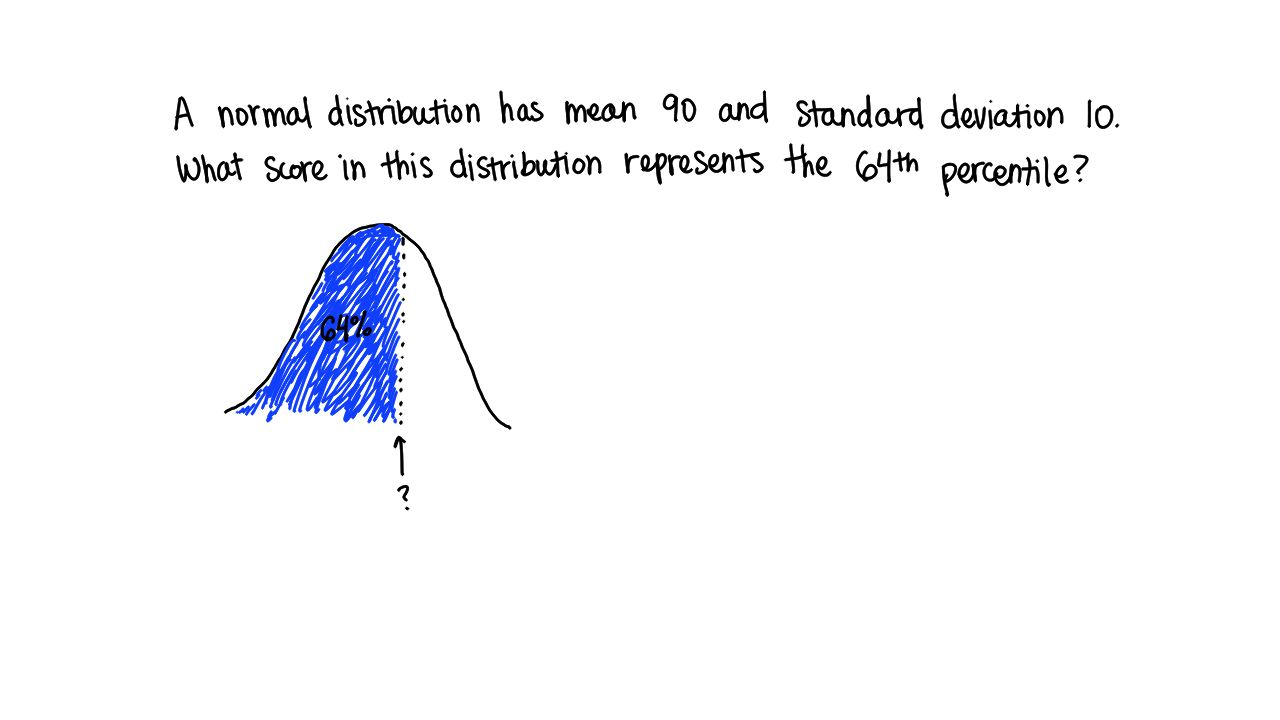 A normal distribution has mean 90 and standard deviation 10.
What score in this distribution represents the 64th percentile?
64%
?